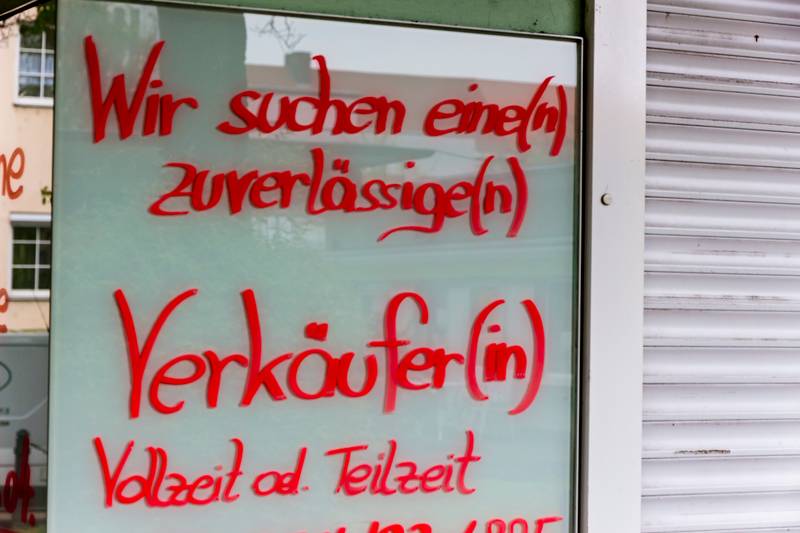 Wir suchen eine(n)
zuverlässige(n)
Verkäufer(in)
Vollzeit od. Teilzeit